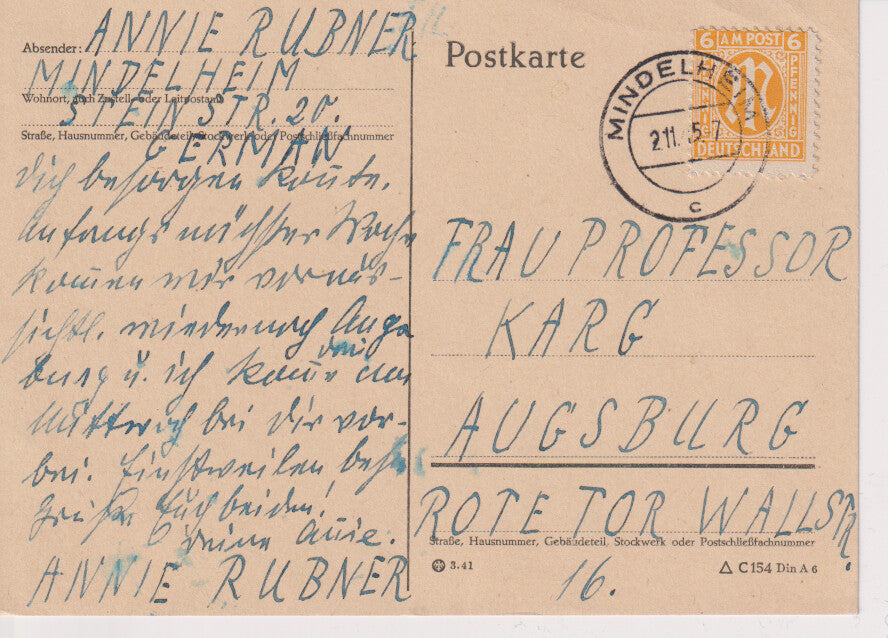 Absender: ANNIE RUBNER
MINDELHEIM
Wohnort, auch Zustell- oder Leitpostamt
STEINSTR. 20.
Straße, Hausnummer, Gebäudeteil, Stockwerk oder Postschließfachnummer
GERMAN
Dich besorgen konnte.
Anfangs nächster Woche
kommen wir voraus-
sichtl. wieder nach Augs-
burg u. ich komme dann am
Mittwoch bei Dir vor-
bei. Einstweilen beste
Grüße Euch beiden!
Deine Annie.
ANNIE RUBNER
Postkarte
MINDELHEIM
2.11.45.7
c
6 AM POST 6
PFENNIG
PFENNIG
M
DEUTSCHLAND
FRAU PROFESSOR
KARG
AUGSBURG
ROTE TOR WALLSTR.
Straße, Hausnummer, Gebäudeteil, Stockwerk oder Postschließfachnummer
16.
3.41
C 154 Din A 6